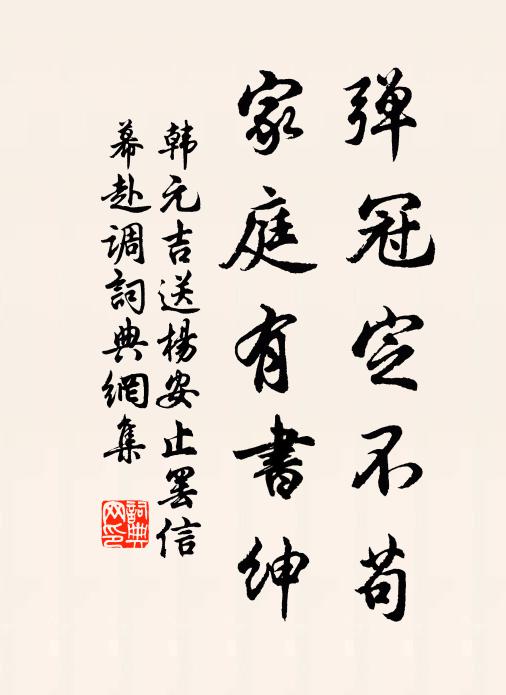 弹冠定不苟
家庭有書紳
韩元吉送杨安止罢信
幕赴调詞典網集
詞典网印